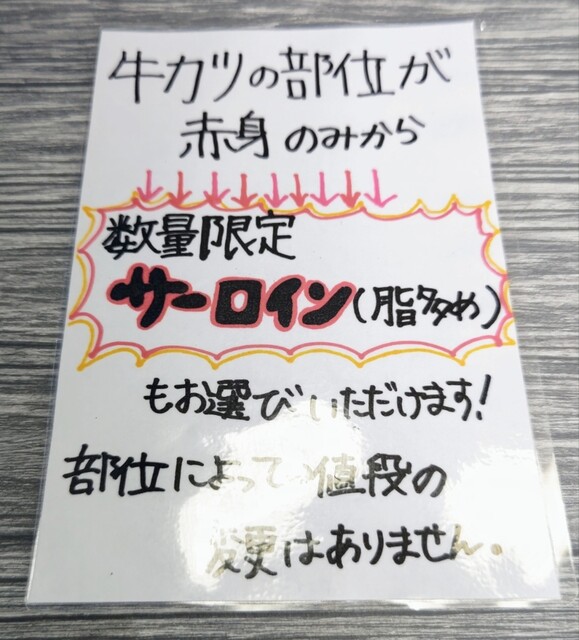 牛カツの部位が
赤身のみから
数量限定
サーロイン(脂多め)
もお選びいただけます!
部位によって値段の
変更はありません。